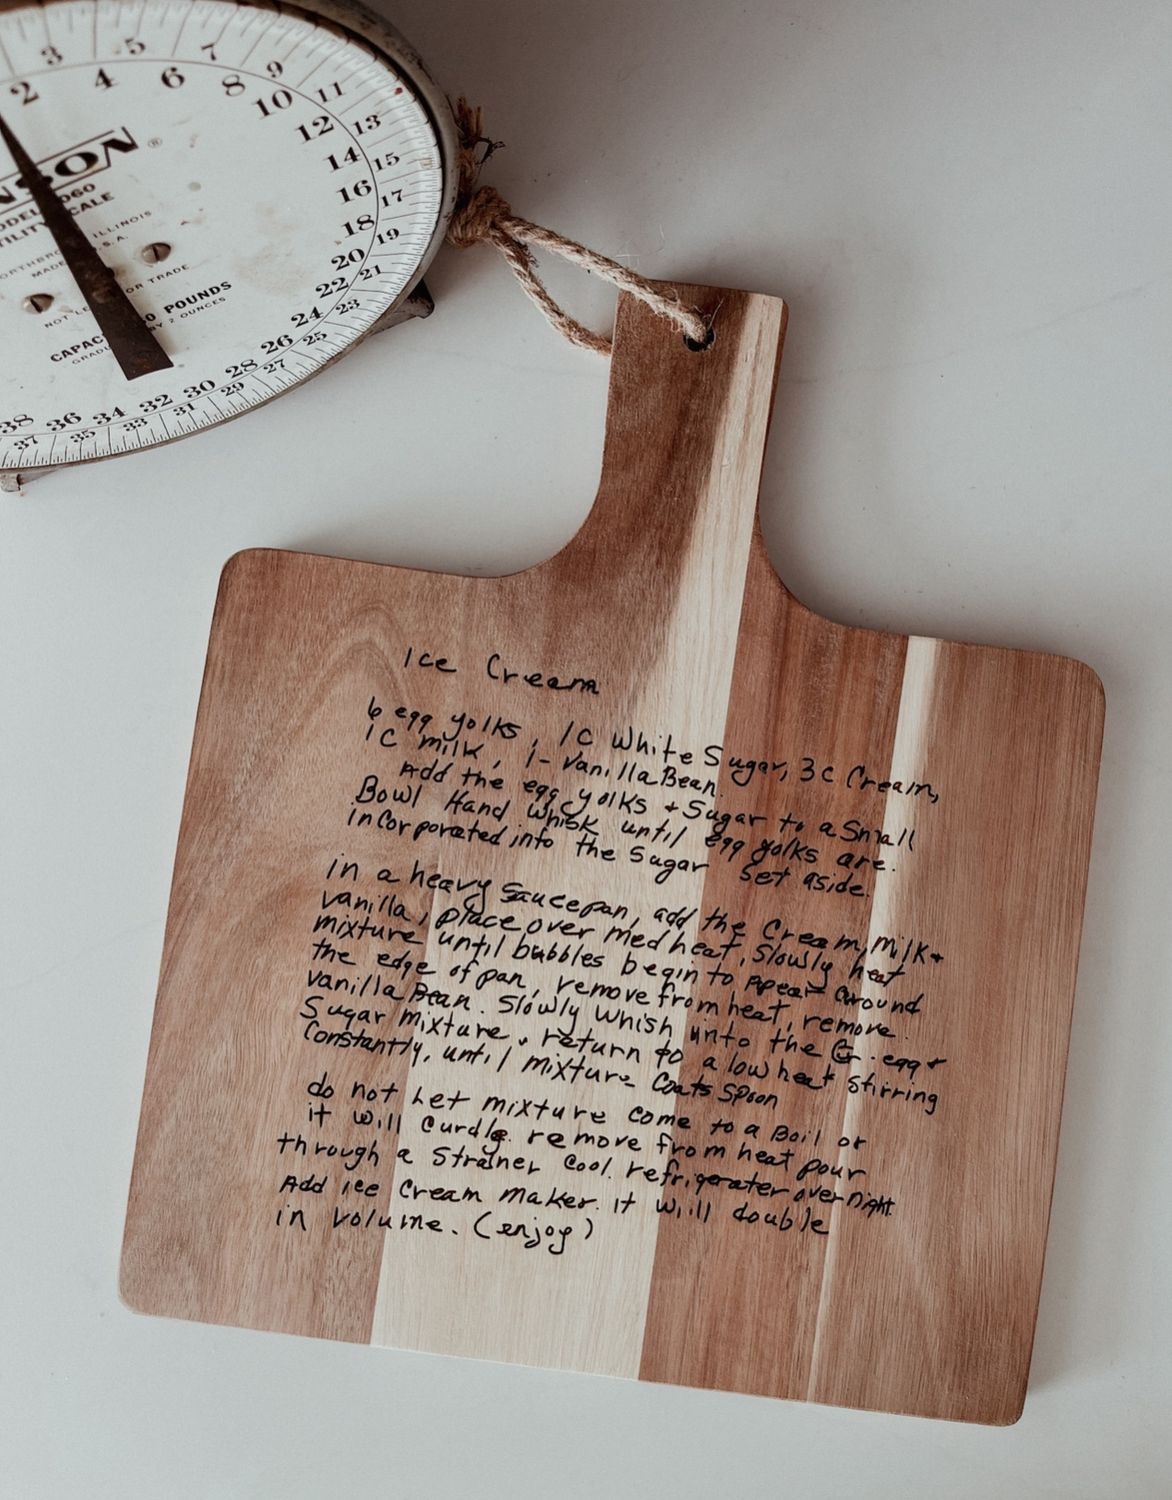 3 5 7 9 11 13 15 17 19 21 23 25 27 29 31 33 35 37
2 4 6 8 10 12 14 16 18 20 22 24 26 28 30 32 34 36 38
NSON ®
MODEL 3060
UTILITY SCALE
NORTHBROOK, ILLINOIS
MADE U.S.A.
NOT LE FOR TRADE
CAPAC 0 POUNDS
GRADU BY 2 OUNCES
Ice Cream
6 egg yolks, 1C White Sugar, 3c Cream,
1C milk, 1- Vanilla Bean.
Add the egg yolks + Sugar to a Small
Bowl Hand Whisk until egg yolks are.
incorporated into the Sugar Set aside.
in a heavy Saucepan, add the Cream, milk +
vanilla, place over med heat, slowly heat
mixture until bubbles begin to ppear around
the edge of pan, remove from heat, remove
vanilla Bean. Slowly whish into the egg +
Sugar mixture. return to a low heat stirring
Constantly, until mixture Coats Spoon
do not Let mixture come to a Boil or
it will Curdle. remove from heat pour
through a Strainer Cool. refrigerater over night.
Add ice Cream maker. it will double
in volume. (enjoy)